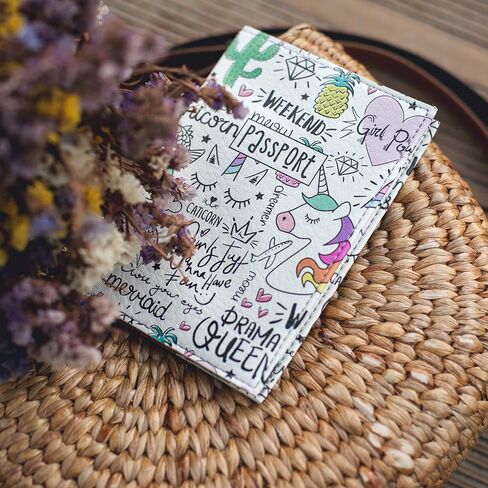 WEEKEND
meow
Girl Po
icorn
PASSPORT
dreamer
CAticorn
Girls Just
wanna Have
Fun
close your eyes
meow
mermaid
DRAMA
QUEEN
W